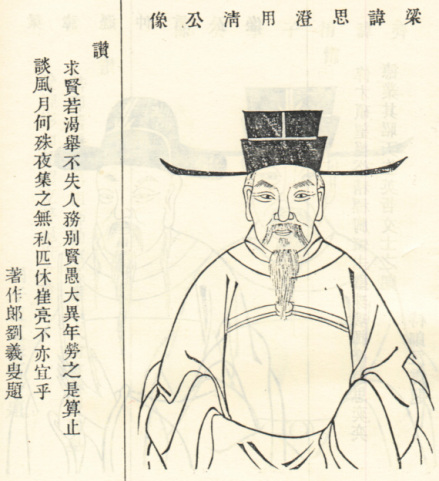 梁諱思澄用淸公像
讚
求賢若渴舉不失人務别賢愚大異年勞之是算止
談風月何殊夜集之無私匹休崔亮不亦宜乎
著作郎劉義叟題